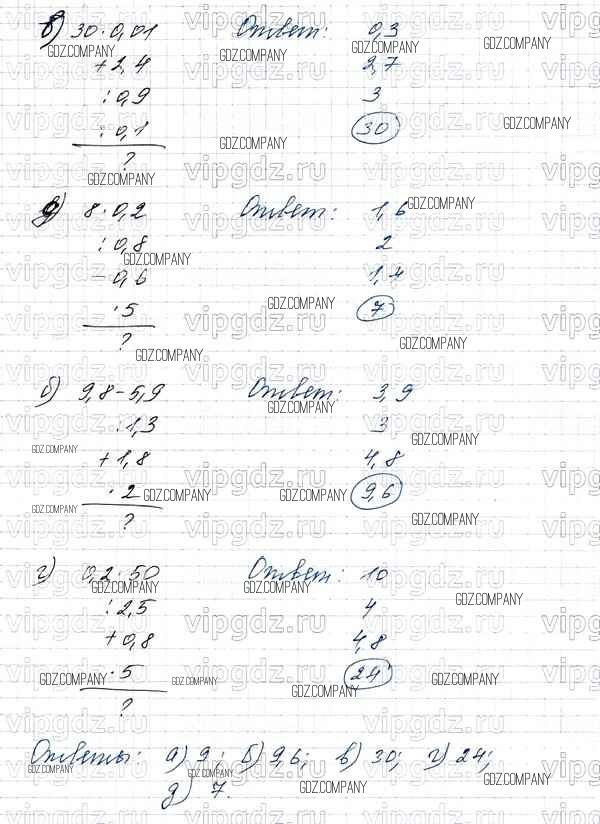 в) 30 · 0,01 Ответ: 0,3
+ 2,4 2,7
: 0,9 3
: 0,1 30
?
д) 8 · 0,2 Ответ: 1,6
: 0,8 2
- 0,6 1,4
· 5 7
?
б) 9,8 - 5,9 Ответ: 3,9
: 1,3 3
+ 1,8 4,8
· 2 9,6
?
г) 0,2 · 50 Ответ: 10
: 2,5 4
+ 0,8 4,8
· 5 24
?
Ответы: а) 9; б) 9,6; в) 30; г) 24;
д) 7.
vipgdz.ru
GDZ.COMPANY